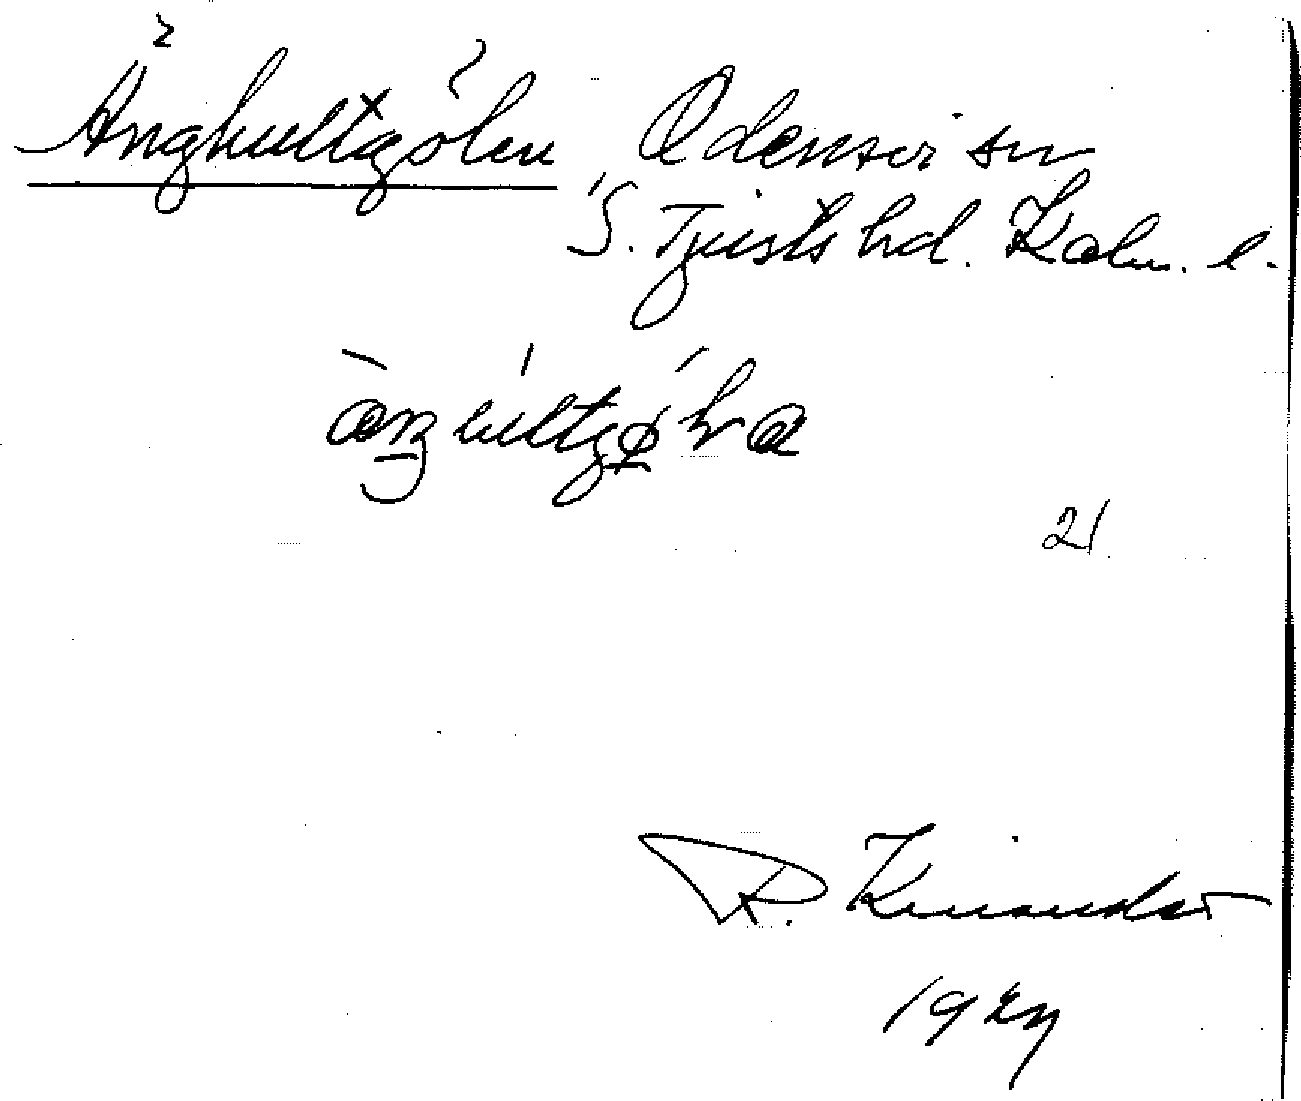 Änghultsgölen Odensvi sn
S. Tjusts hd. Kalm. l.
21
R. Kinander
1927